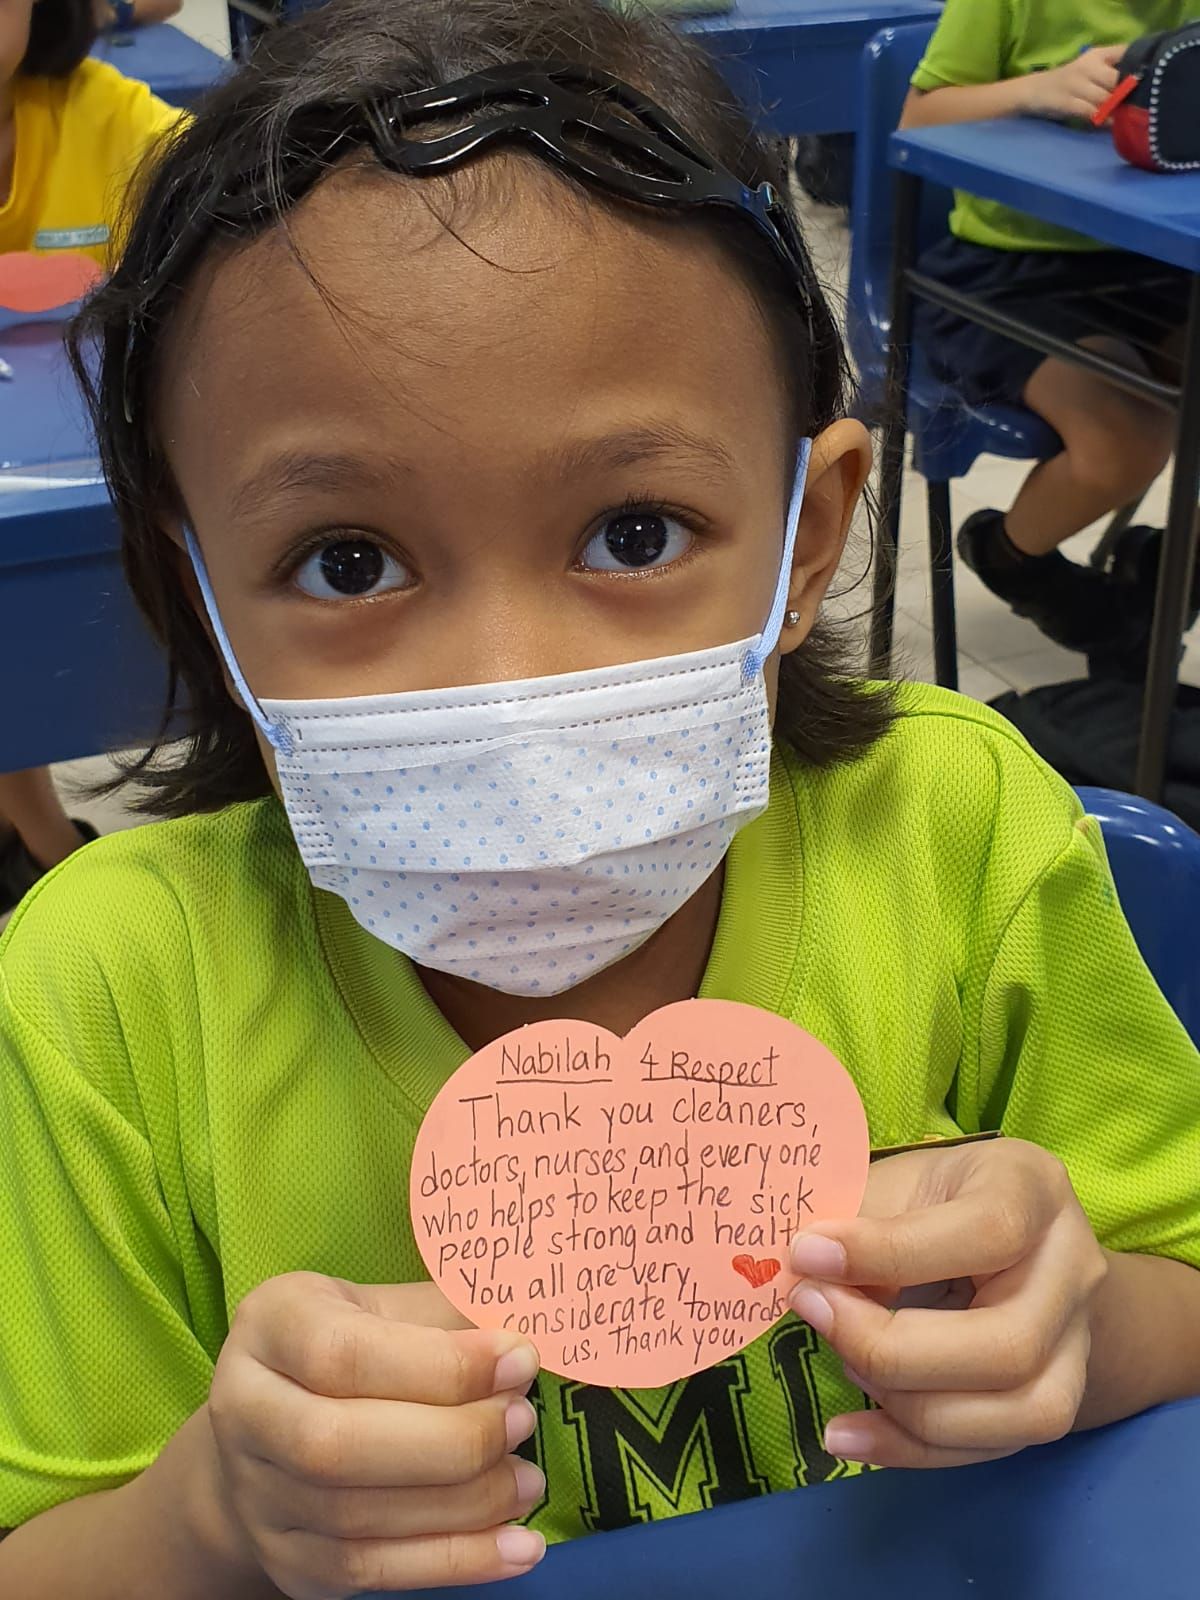 Nabilah 4 Respect
Thank you cleaners,
doctors, nurses, and everyone
who helps to keep the sick
people strong and health
You all are very
considerate towards
us. Thank you.
UMI